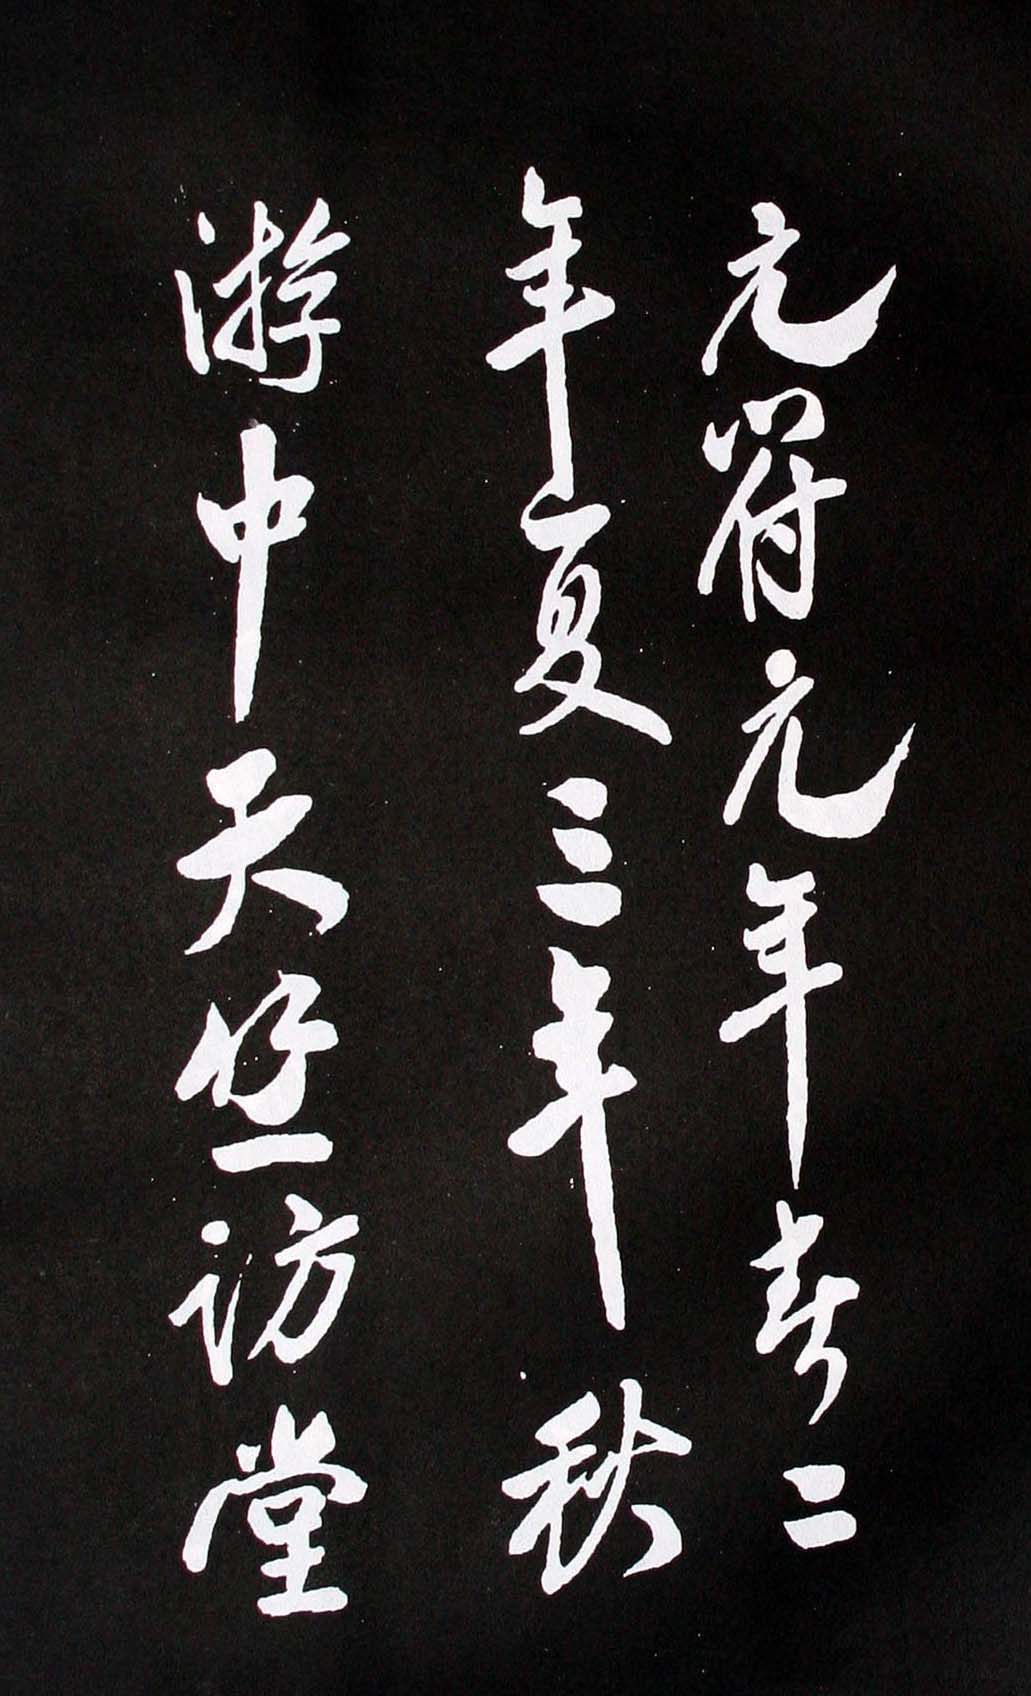 元符元年春二
年夏三年秋
游中天竺访堂